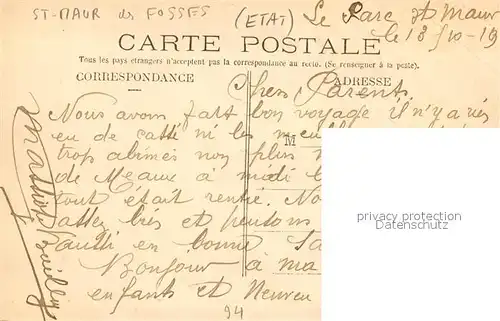 ST-MAUR des FOSSES (ETAT) Le Parc St Maur
le 18/10-19
CARTE POSTALE
Tous les pays étrangers n'acceptent pas la correspondance au recto. (Se renseigner à la poste).
CORRESPONDANCE ADRESSE
Chers Parents
Nous avons fait bon voyage il n'y a rien
eu de cassé ni les meubles
M
trop abimés non plus
de Meaux a midi
tout était rentré. No
assez bien et pensons
aussi en bonne Sa
Bonjour à ma
enfants et Neveu
94
privacy protection
Datenschutz